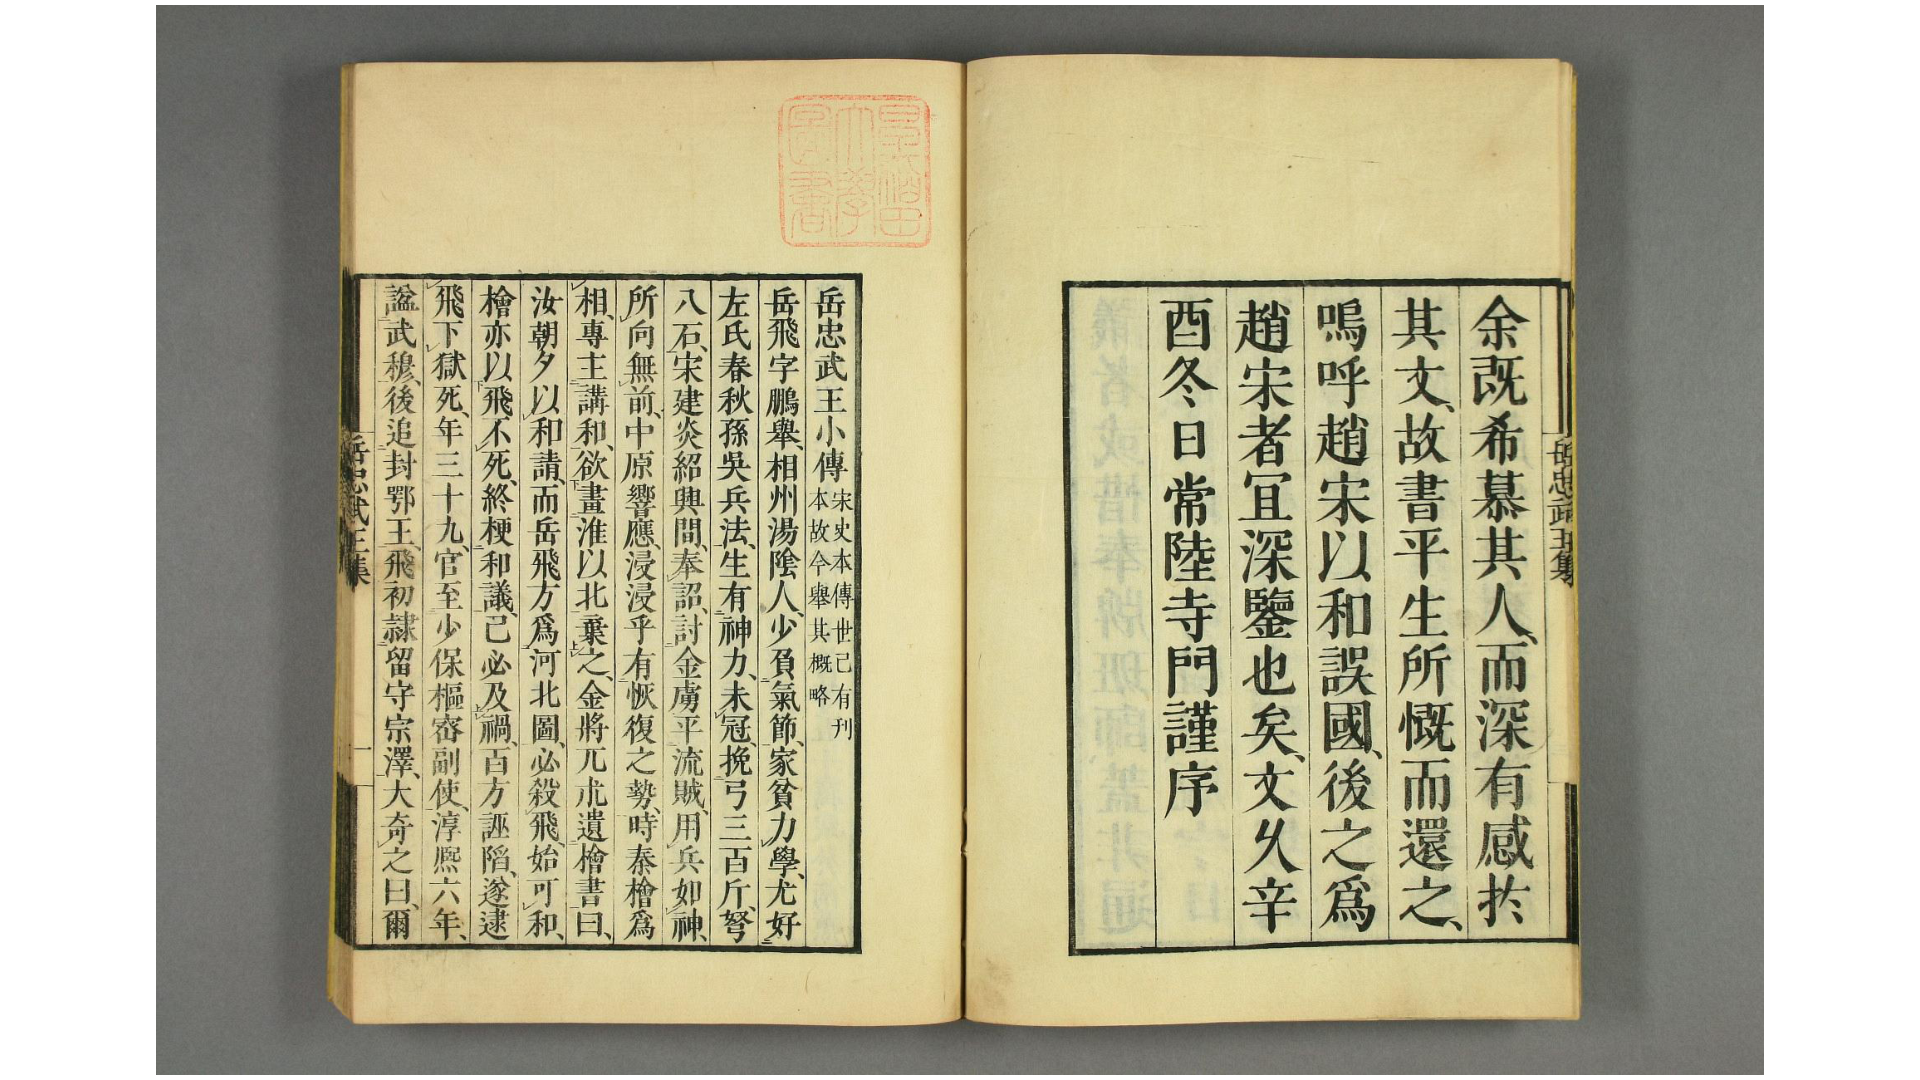 余既希慕其人、而深有感於
其文、故書平生所慨而還之、
嗚呼趙宋以和誤國、後之爲
趙宋者宜深鑒也矣、文久辛
酉冬日常陸寺門謹序
岳忠武王集
早稲田
大學
圖書
岳忠武王小傳
宋史本傳世已有刊
本故今舉其概略
岳飛字鵬舉、相州湯陰人、少負氣節、家貧力學、尤好
左氏春秋孫吳兵法、生有神力、未冠、挽弓三百斤、弩
八石、宋建炎紹興間、奉詔、討金虜平流賊、用兵如神、
所向無前、中原響應、浸浸乎有恢復之勢、時秦檜爲
相、專主講和、欲畫淮以北棄之、金將兀朮遺檜書曰、
汝朝夕以和請、而岳飛方爲河北圖、必殺飛、始可和、
檜亦以飛不死、終梗和議、己必及禍、百方誣陷、遂逮
飛下獄死、年三十九、官至少保樞密副使、淳熈六年、
諡武穆、後追封鄂王、飛初隷留守宗澤、大奇之曰、爾
岳忠武王集
一